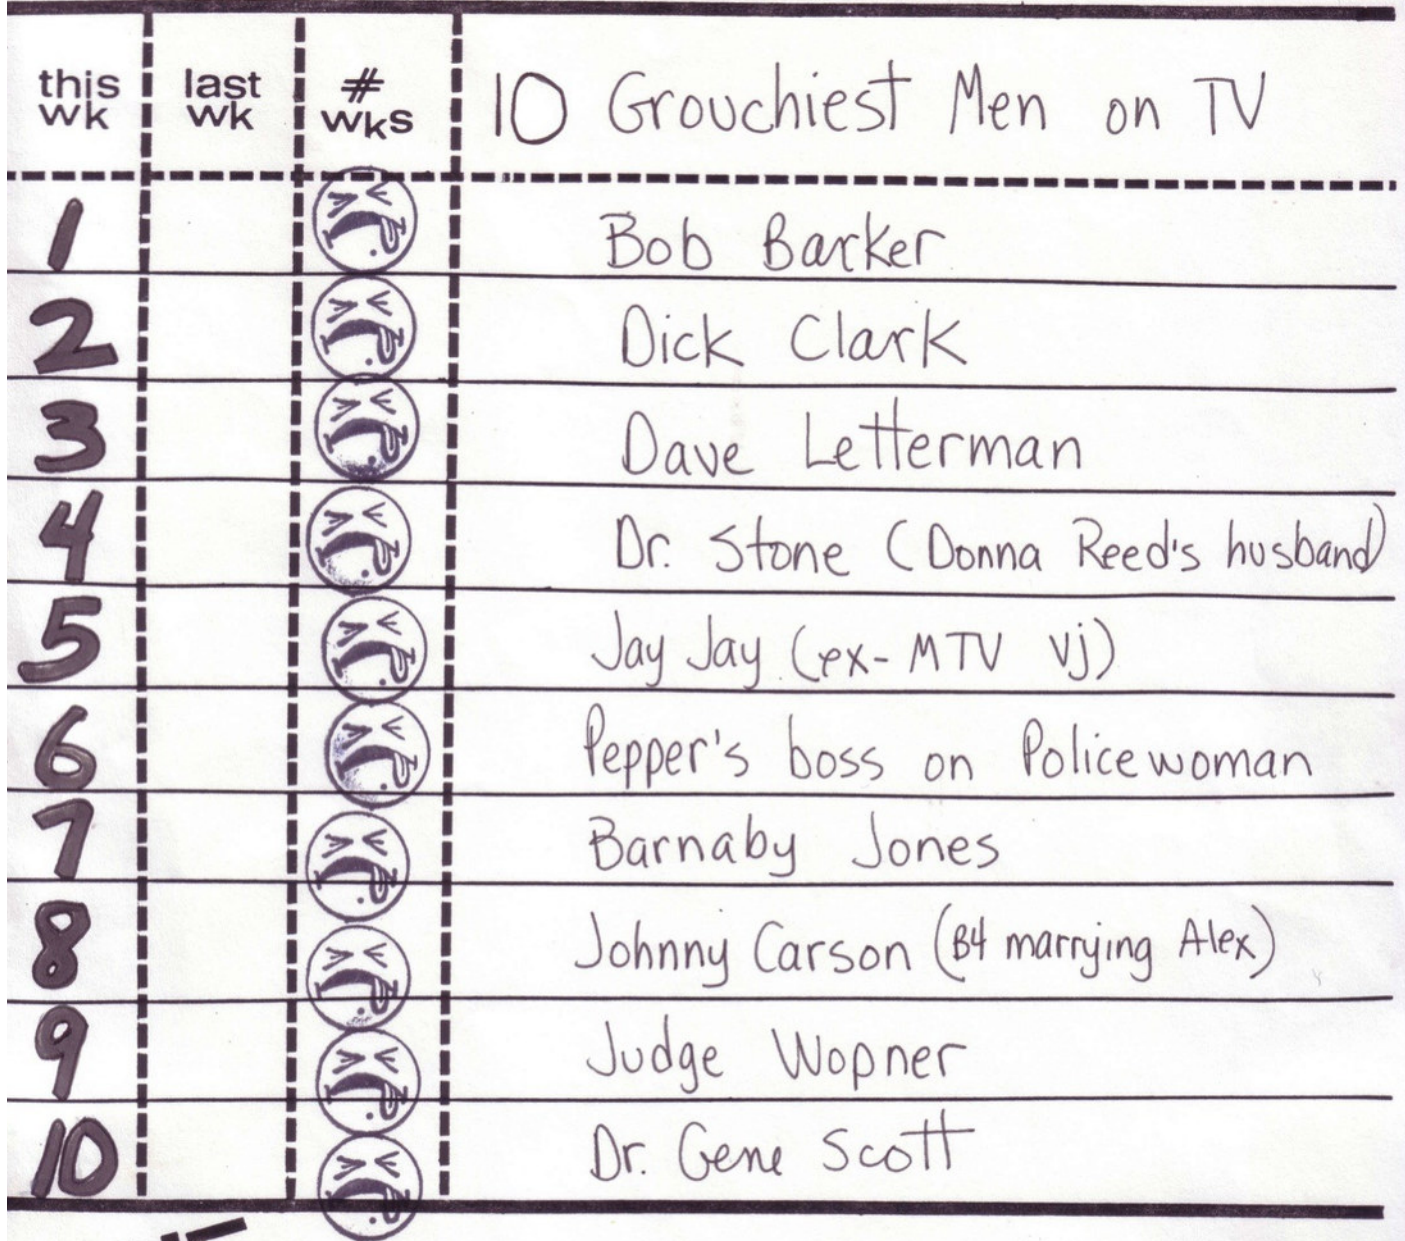 this wk last wk # wks 10 Grouchiest Men on TV
1 Bob Barker
2 Dick Clark
3 Dave Letterman
4 Dr. Stone (Donna Reed's husband)
5 Jay Jay (ex-MTV vj)
6 Pepper's boss on Policewoman
7 Barnaby Jones
8 Johnny Carson (B4 marrying Alex)
9 Judge Wopner
10 Dr. Gene Scott